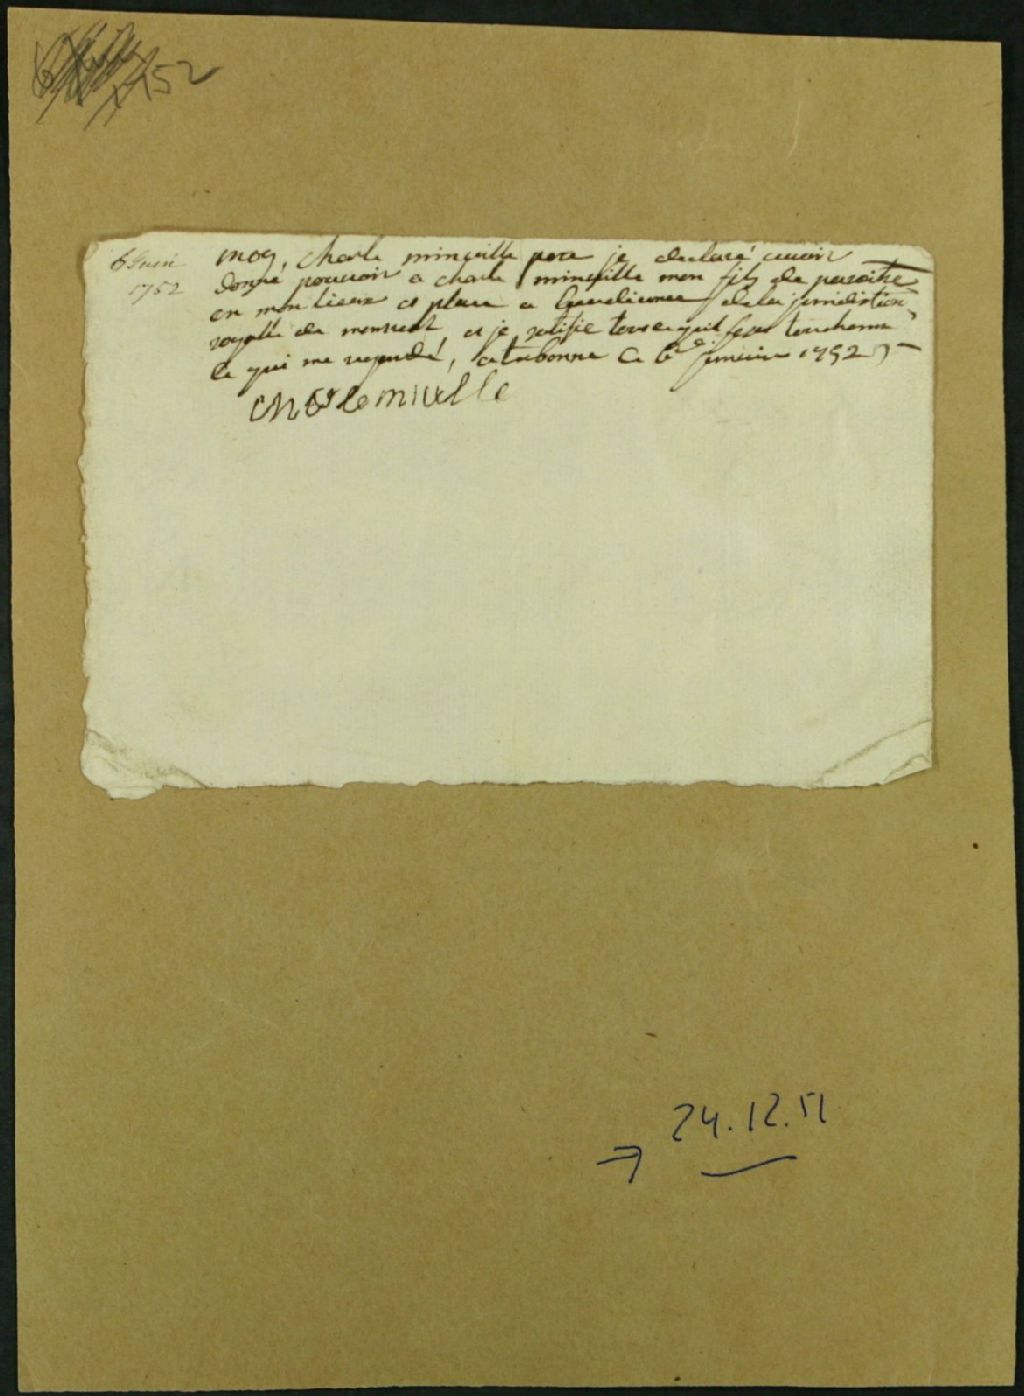 1752
6 Juin
1752
moy, charle minville pere je declaré avoir
donné pouvoir a charle minville mon fils de paroitre
en mon lieux et place a l'audiance de la jurisdiction
royalle de monreal et je ratifie tous ce quil fera touchant
le qui me regarde, a ce 6e 1752
charle miville
24.12.51